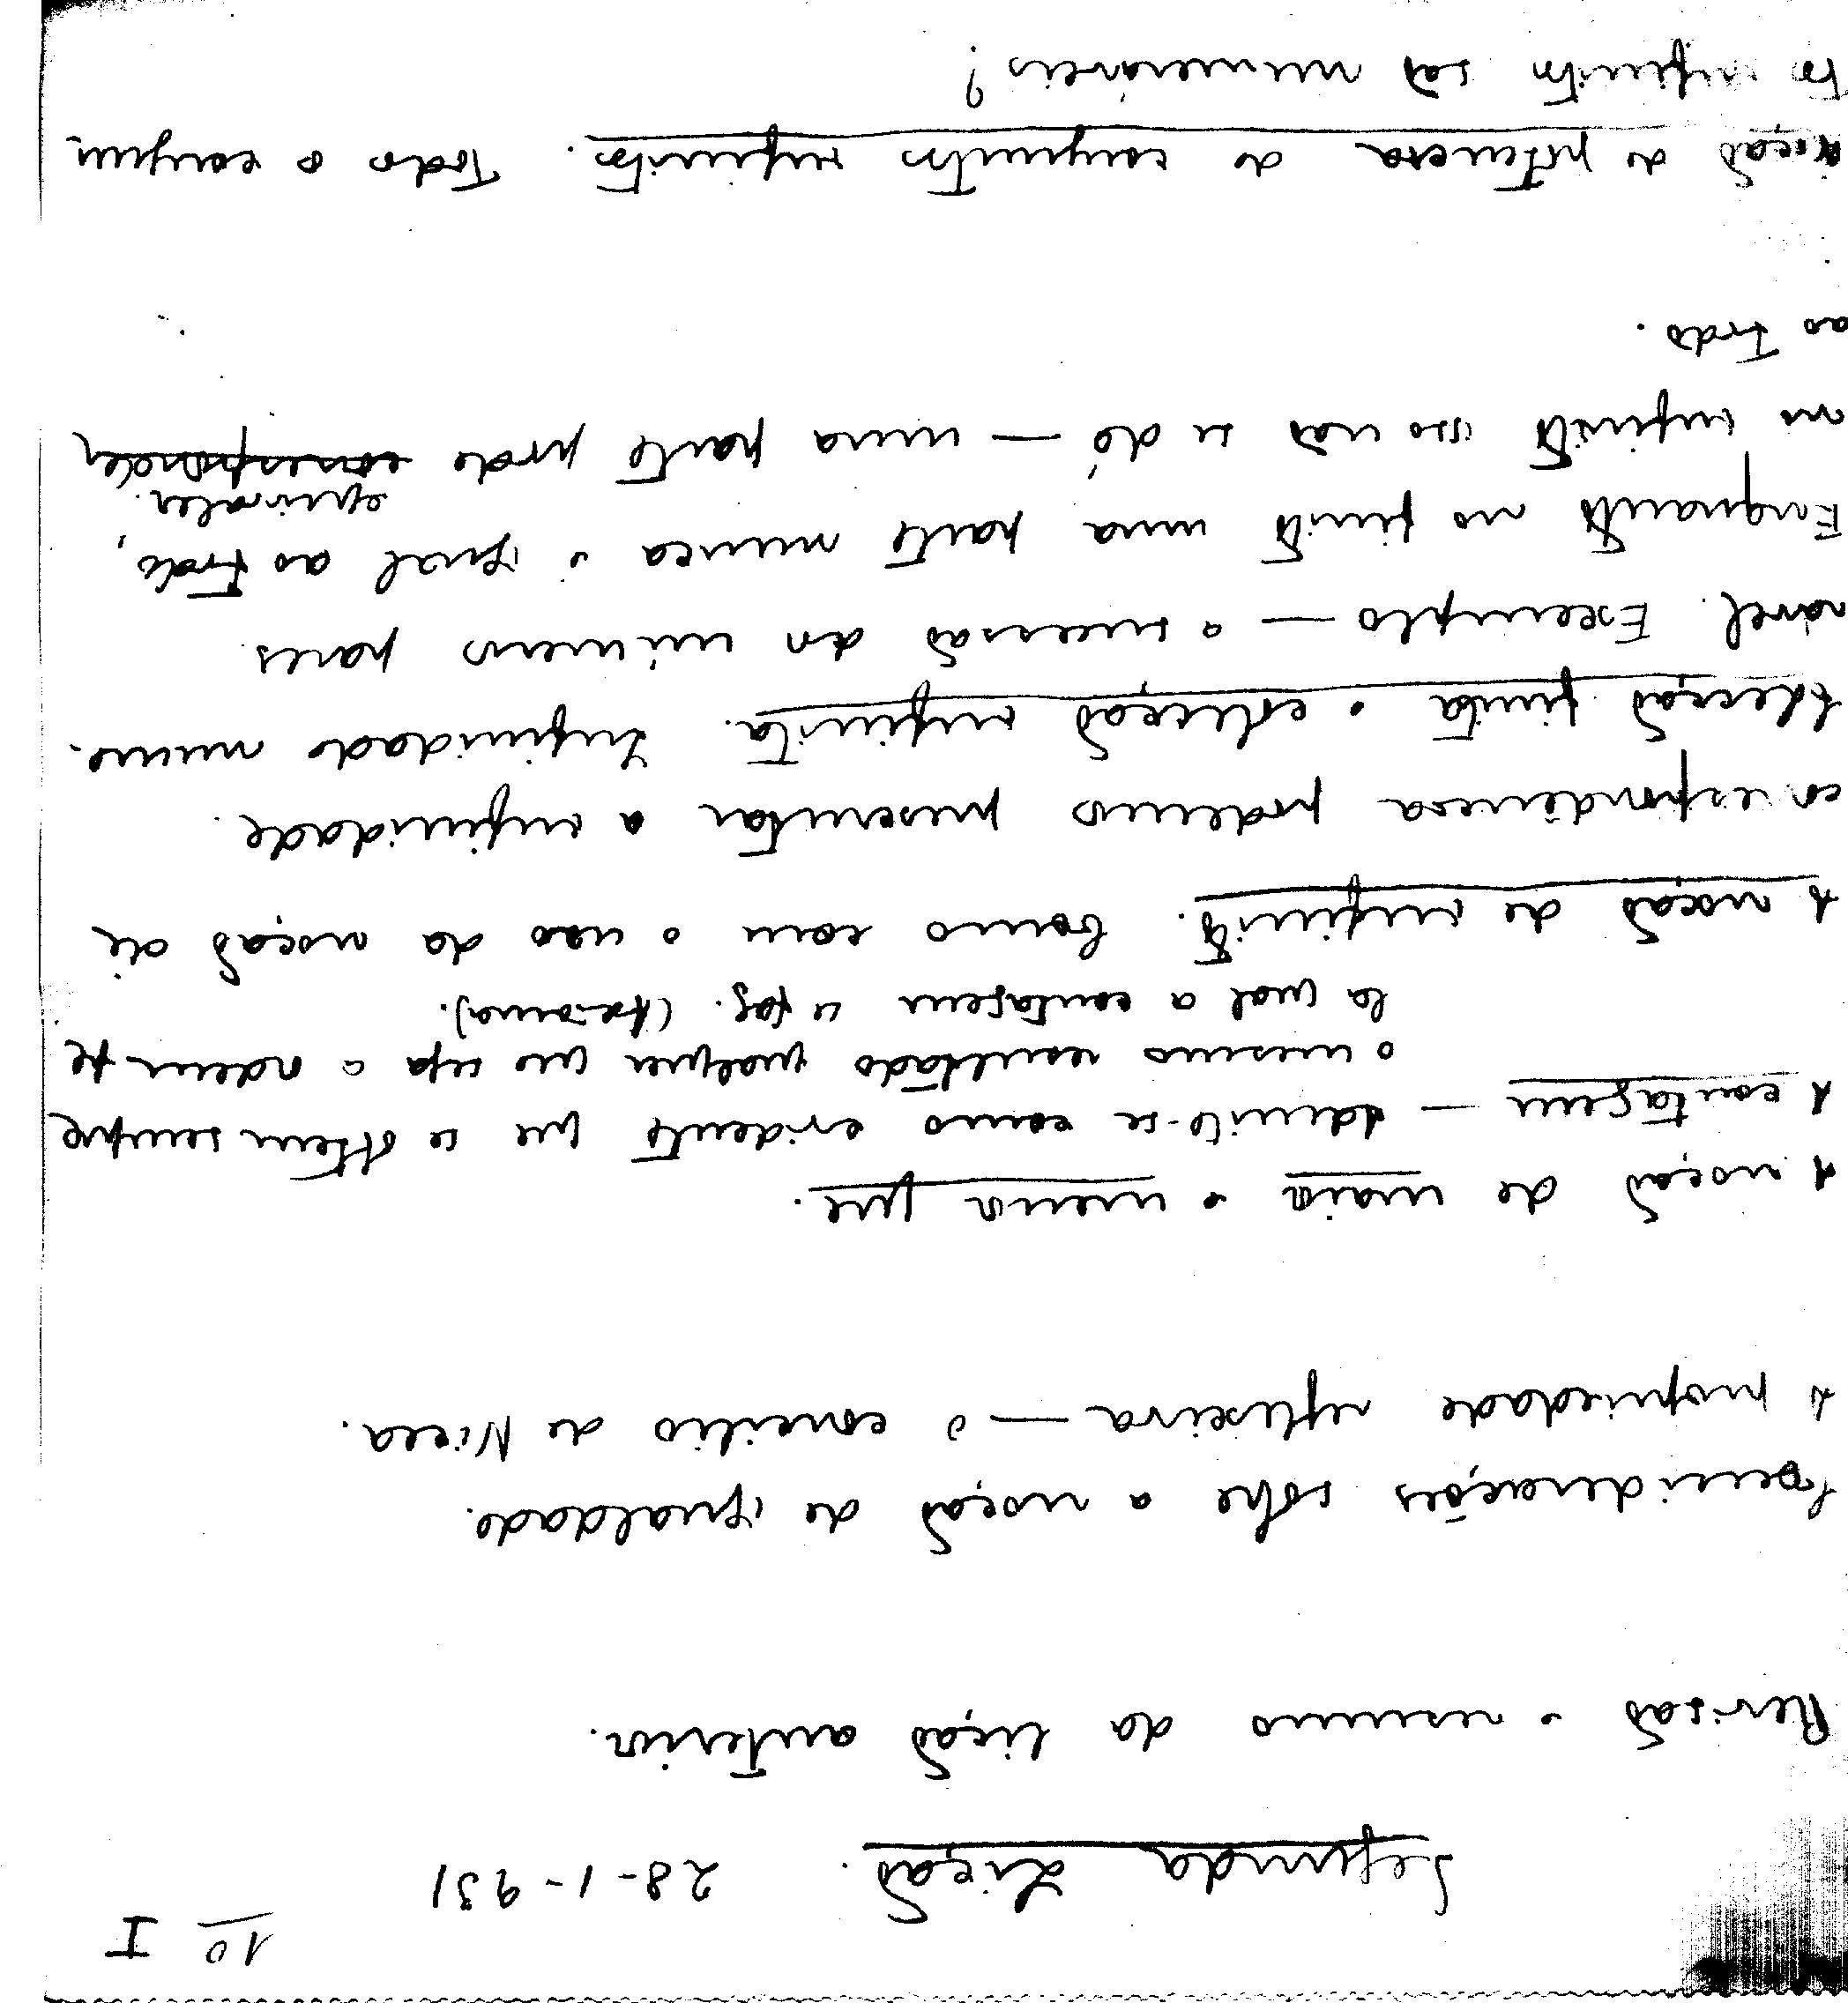 10 I
Segunda Lição. 28-1-931
Revisão e resumo da lição anterior.
Considerações sobre a noção de igualdade.
A propriedade reflexiva — o concilio de Nicea.
A noção de maior e menor que.
A contagem — admite-se como evidente que se obtem sempre
o mesmo resultado qualquer que seja a ordem pe
la qual a contagem se faz. (Axioma).
A noção de infinito. Como com o uso da noção de
correspondência podemos presentar a infinidade.
Colecção finita e colecção infinita. Infinidade nume-
ravel. Exemplo — a sucessão dos números pares
Enquanto no finito uma parte nunca é igual ao todo,
no infinito isso não se dá — uma parte pode corresponder
equivaler.
ao todo.
Noção de potencia de conjuntos infinitos. Todo o conjun
to infinito são numeráveis?